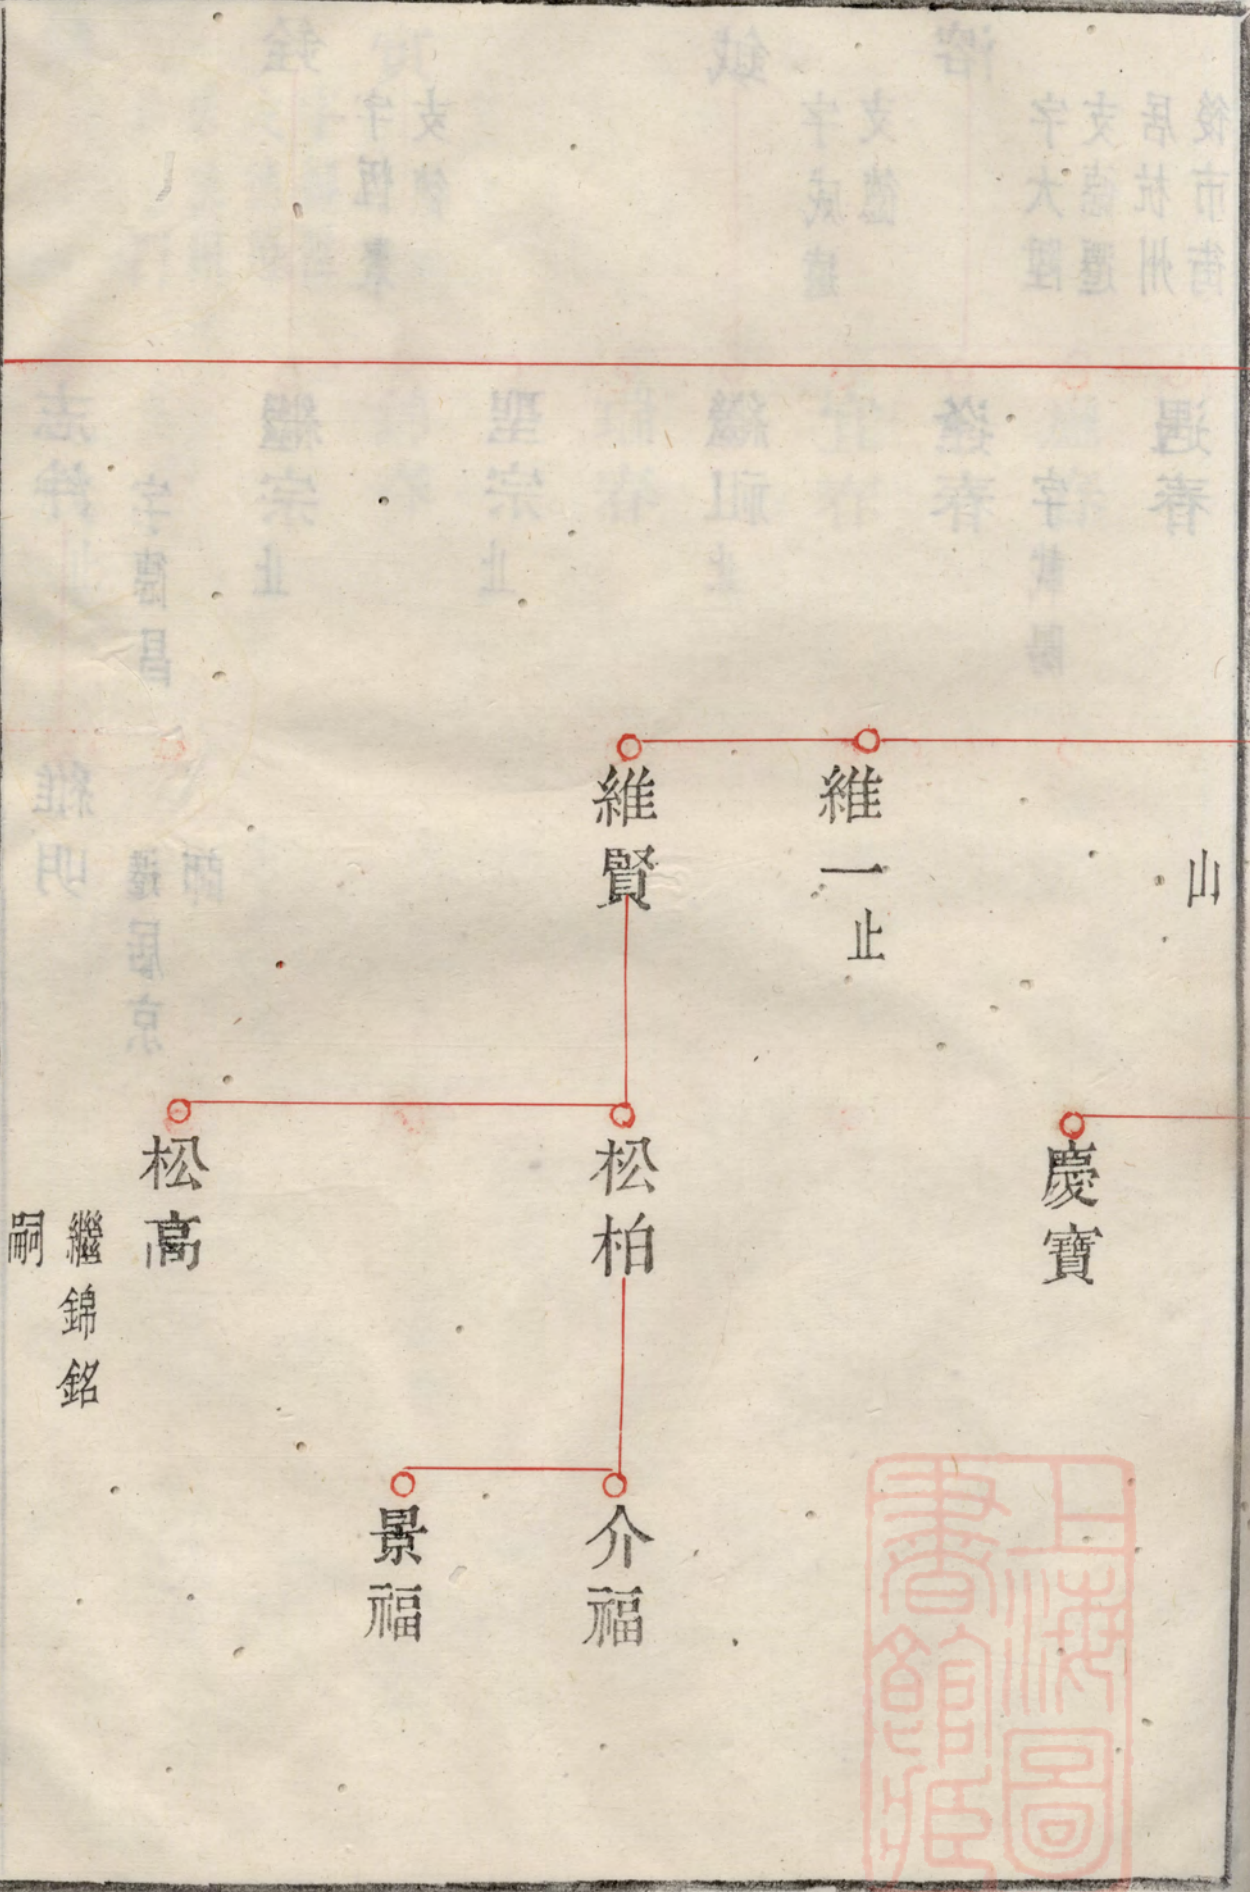 山
維一止
維賢
慶寶
松柏
松高
繼錦銘
嗣
介福
景福
上海圖
書館藏